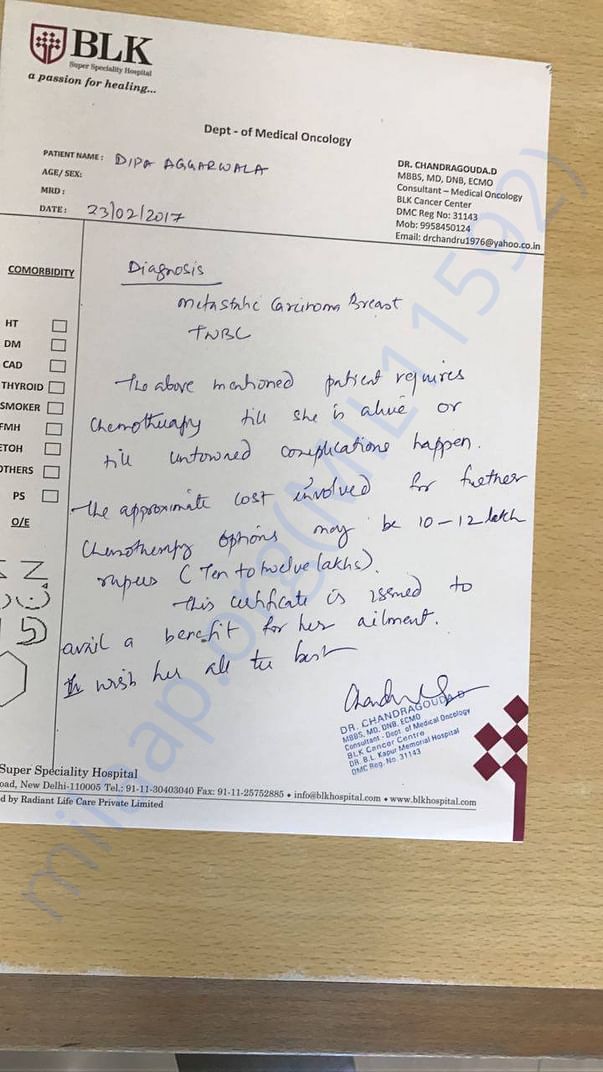 BLK
Super Speciality Hospital
a passion for healing...
Dept - of Medical Oncology
PATIENT NAME : DIPA AGGARWALA
AGE/ SEX:
MRD :
DATE : 23/02/2017
DR. CHANDRAGOUDA.D
MBBS, MD, DNB, ECMO
Consultant – Medical Oncology
BLK Cancer Center
DMC Reg No: 31143
Mob: 9958450124
Email: drchandru1976@yahoo.co.in
COMORBIDITY
HT
DM
CAD
THYROID
SMOKER
FMH
ETOH
OTHERS
PS
O/E
Diagnosis
Metastatic Carcinoma Breast
TNBC
The above mentioned patient requires
Chemotherapy till she is alive or
till untoward complications happen.
The approximate cost involved for further
Chemotherapy options may be 10-12 lakh
rupees (Ten to twelve lakhs).
This certificate is issued to
avail a benefit for her ailment.
wish her all the best
DR. CHANDRAGOUDA.D
MBBS, MD, DNB, ECMO
Consultant - Dept. of Medical Oncology
BLK Cancer Centre
DR. B.L. Kapur Memorial Hospital
DMC Reg. No. 31143
Super Speciality Hospital
oad, New Delhi-110005 Tel.: 91-11-30403040 Fax: 91-11-25752885 • info@blkhospital.com • www.blkhospital.com
d by Radiant Life Care Private Limited
milaap.org(MIL11592)